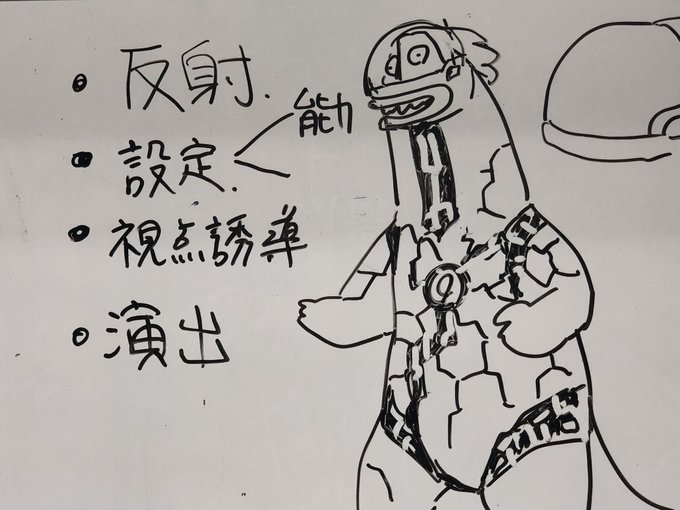 • 反射.
• 設定. < 能力
• 視点誘導
• 演出